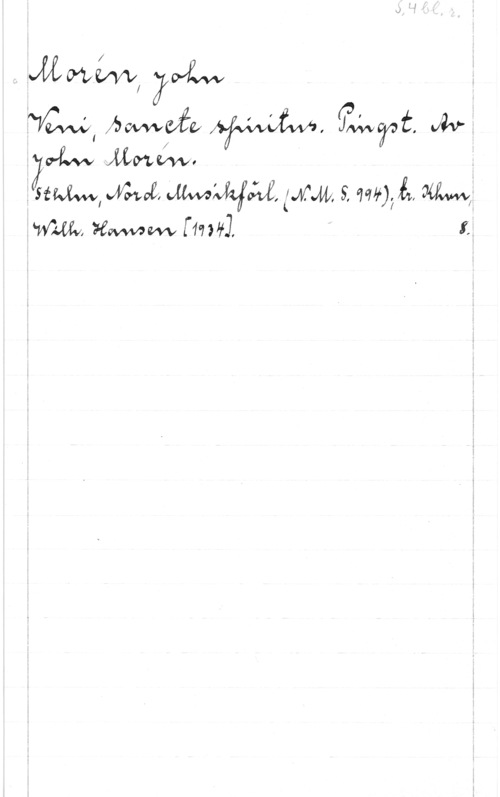 S, 4 bl. r.
Morén, John
Veni, sancte spiritus. Pingst. Av
John Morén.
Sthlm, Nord. Musikförl. (N.M.S. 994), tr. Khvn,
Wilh. Hansen [1934]. 8.